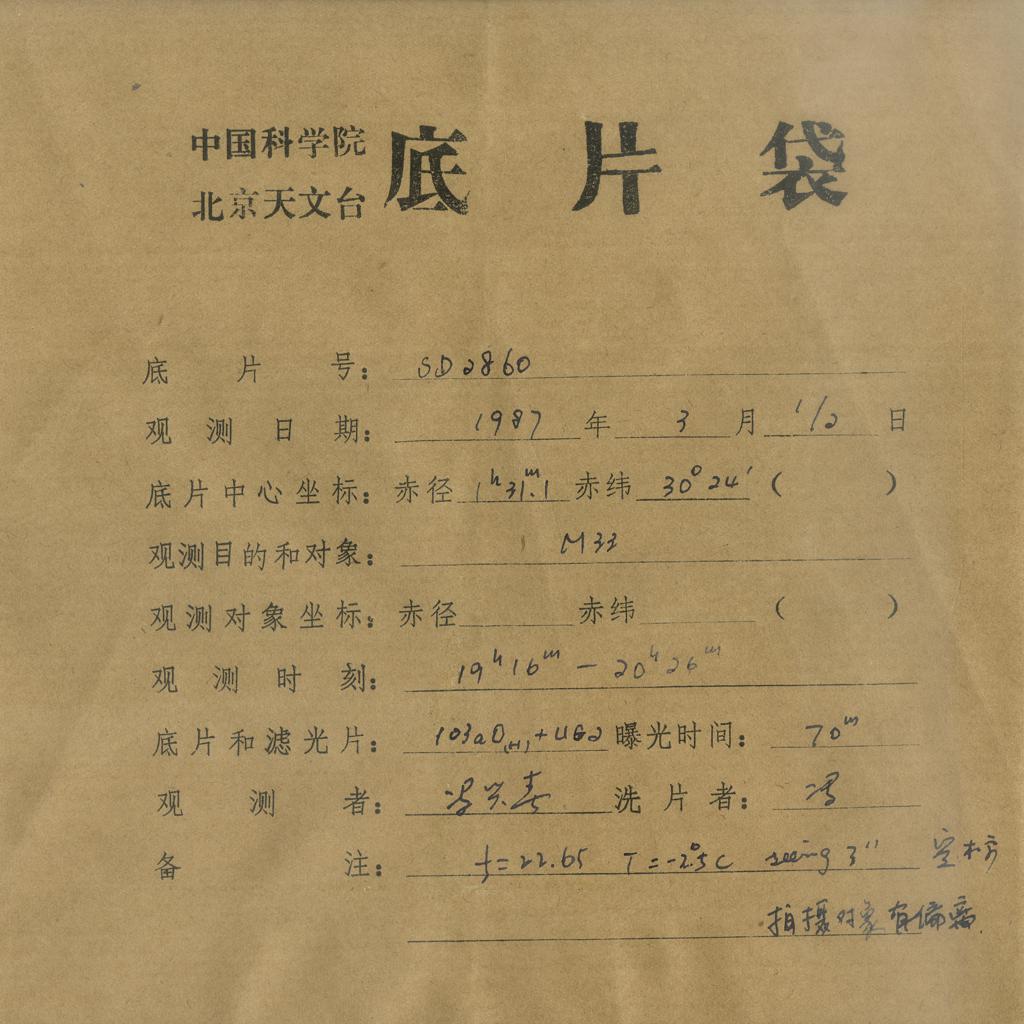 中国科学院
北京天文台
底片袋
底片号： SD2860
观测日期： 1987年3月1/2日
底片中心坐标：赤径 1h31m.1 赤纬 30°24′ ( )
观测目的和对象： M33
观测对象坐标：赤径 赤纬 ( )
观测时刻： 19h16m — 20h26m
底片和滤光片： 103aO(H)+UG2 曝光时间： 70m
观测者： 冯兴春 洗片者： 冯
备注： f=22.65 T=-2°.5C seeing 3″
拍摄对象有偏离